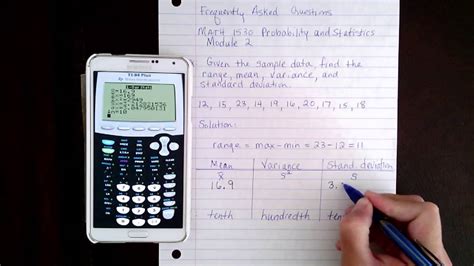 Frequently Asked Questions
MATH 1530 Probability and Statistics
Module 2
Given the sample data, find the
range, mean, variance, and
standard deviation.
12, 15, 23, 14, 19, 16, 20, 17, 15, 18
Solution:
range = max-min = 23-12 = 11
Mean Variance Stand. deviation
x̄ s² s
16.9 3.
tenth hundredth ten
TI-84 Plus
1-Var Stats
x̄=16.9
Σx=169
n=10